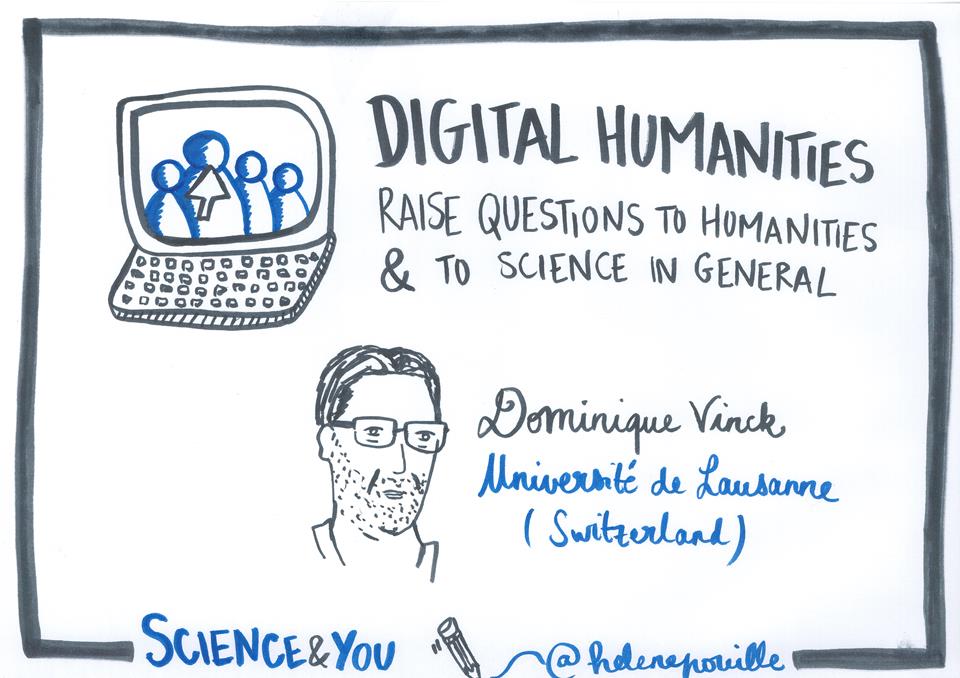 DIGITAL HUMANITIES
RAISE QUESTIONS TO HUMANITIES
& TO SCIENCE IN GENERAL
Dominique Vinck
Université de Lausanne
(Switzerland)
SCIENCE&YOU
@helenepouille